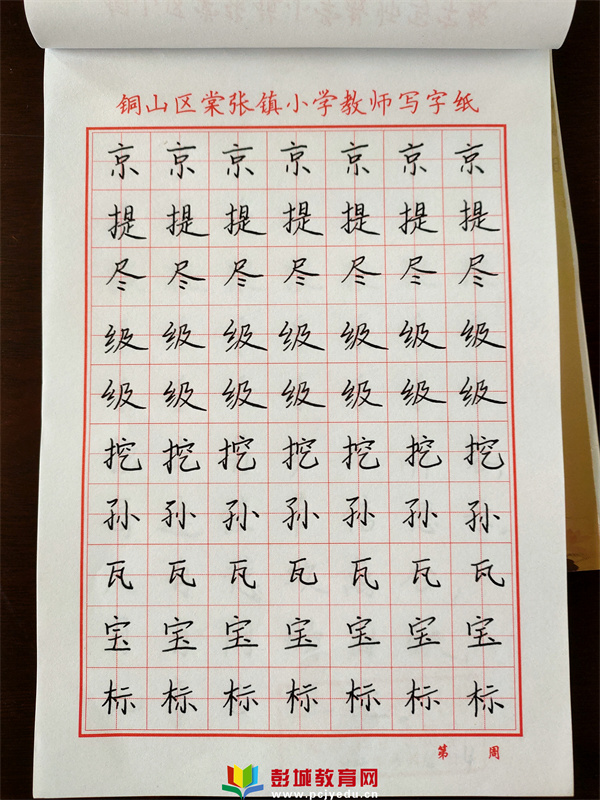 铜山区棠张镇小学教师写字纸
京京京京京京京
提提提提提提提
尽尽尽尽尽尽尽
级级级级级级级
级级级级级级级
挖挖挖挖挖挖挖
孙孙孙孙孙孙孙
瓦瓦瓦瓦瓦瓦瓦
宝宝宝宝宝宝宝
标标标标标标标
第 周
彭城教育网
www.pcjyedu.cn